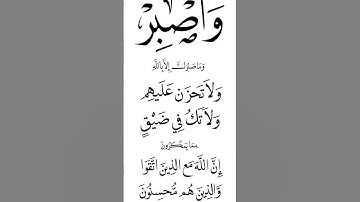 وَاصْبِرْ
وَمَا صَبْرُكَ إِلَّا بِاللَّهِ
وَلَا تَحْزَن عَلَيْهِم
وَلَا تَكُ فِي ضَيْقٍ
مِمَّا يَمْكُرُونَ
إِنَّ اللَّهَ مَعَ الَّذِينَ اتَّقَوْا
وَالَّذِينَ هُم مُحْسِنُونَ